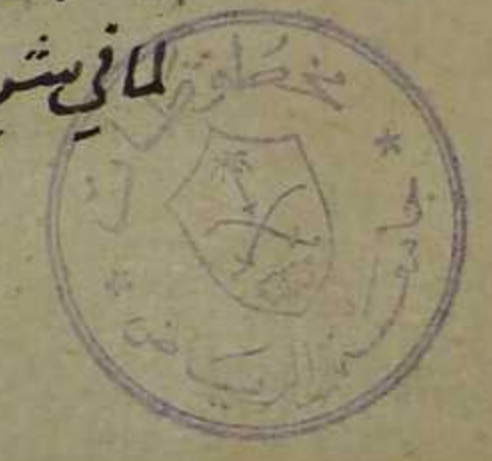 لما في شر
مخطوطات
جامعة الرياض